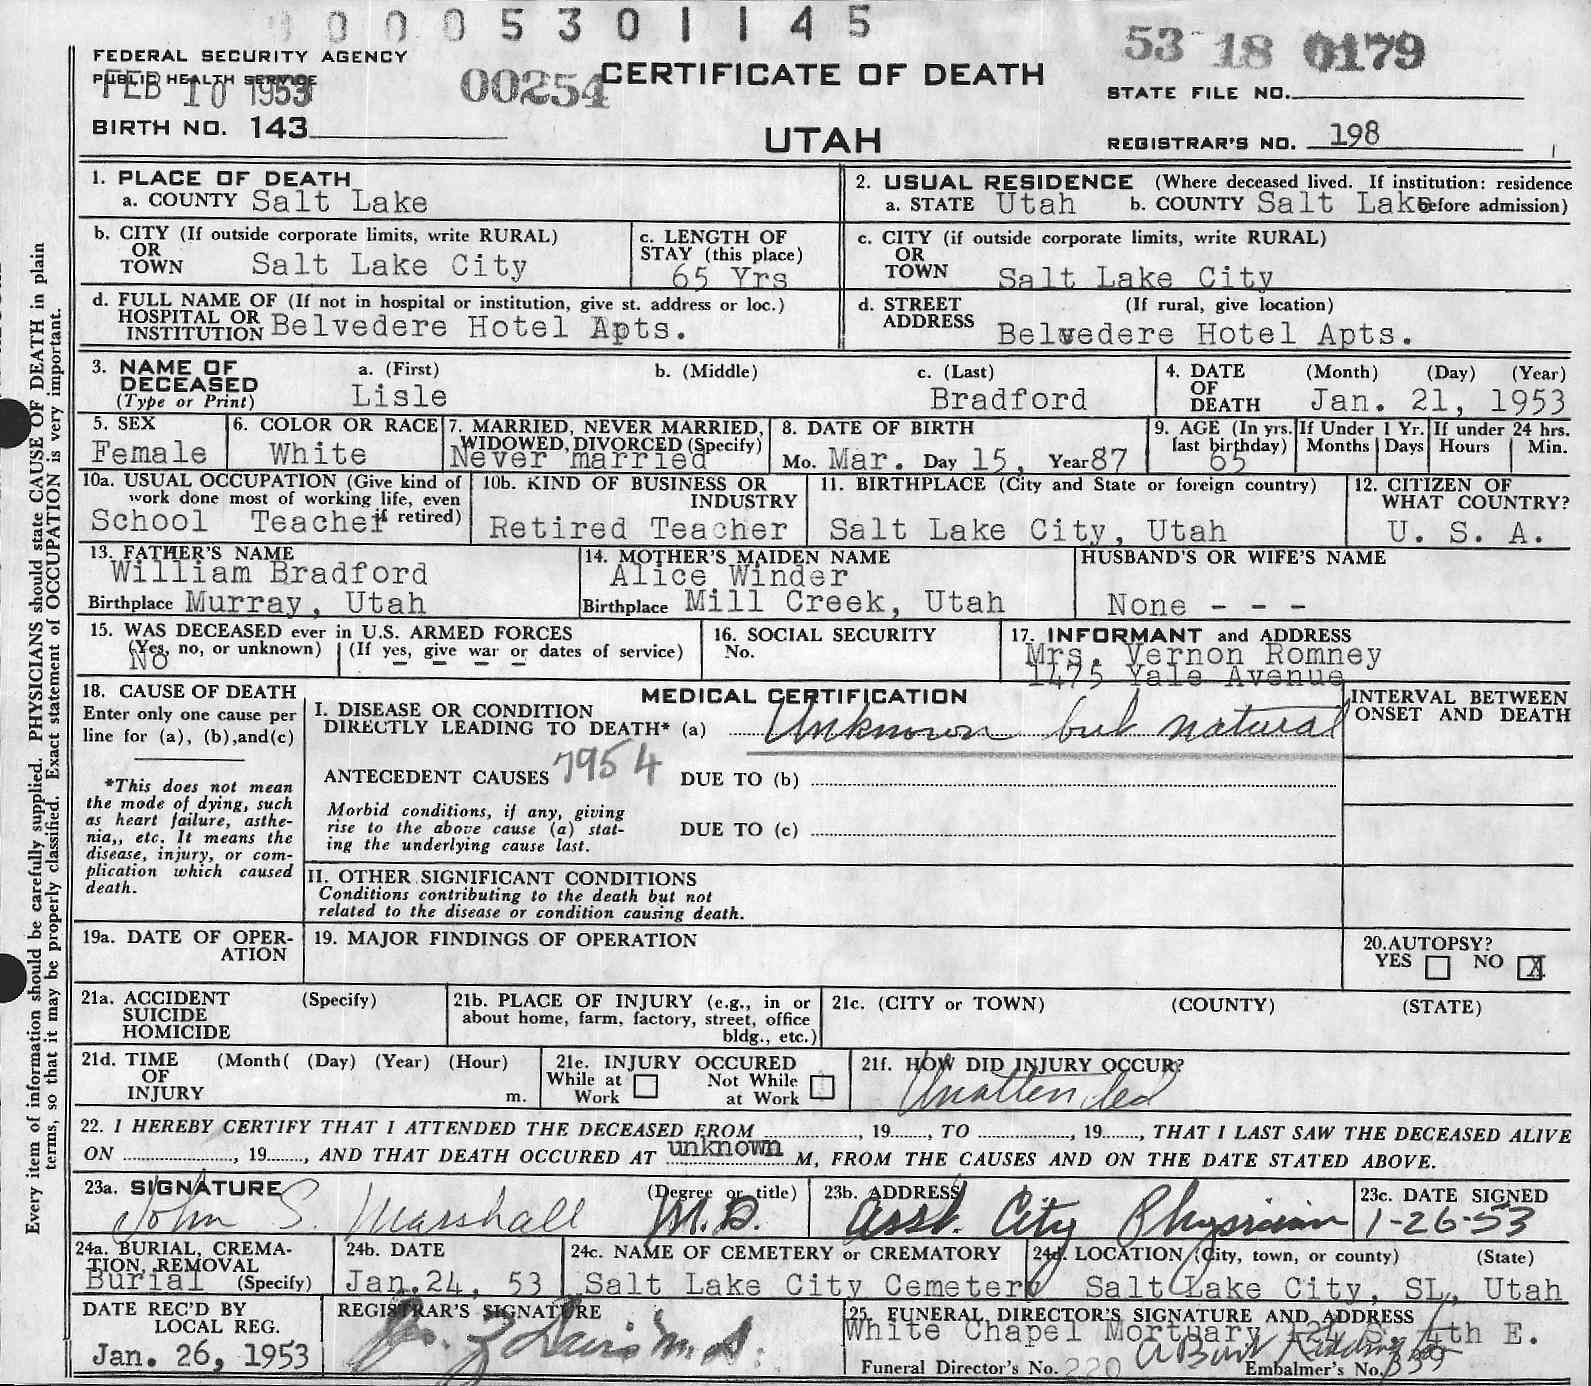 0005301145
FEDERAL SECURITY AGENCY
PUBLIC HEALTH SERVICE
FEB 10 1953
00254
CERTIFICATE OF DEATH
UTAH
53 18 0179
STATE FILE NO.
BIRTH NO. 143
REGISTRAR'S NO. 198
1. PLACE OF DEATH
a. COUNTY Salt Lake
2. USUAL RESIDENCE (Where deceased lived. If institution: residence before admission)
a. STATE Utah b. COUNTY Salt Lake
b. CITY (If outside corporate limits, write RURAL)
OR
TOWN Salt Lake City
c. LENGTH OF
STAY (this place)
65 Yrs
c. CITY (if outside corporate limits, write RURAL)
OR
TOWN Salt Lake City
d. FULL NAME OF (If not in hospital or institution, give st. address or loc.)
HOSPITAL OR
INSTITUTION Belvedere Hotel Apts.
d. STREET (If rural, give location)
ADDRESS Belvedere Hotel Apts.
3. NAME OF
DECEASED
(Type or Print)
a. (First) b. (Middle) c. (Last)
Lisle Bradford
4. DATE (Month) (Day) (Year)
OF
DEATH Jan. 21, 1953
5. SEX
Female
6. COLOR OR RACE
White
7. MARRIED, NEVER MARRIED,
WIDOWED, DIVORCED (Specify)
Never married
8. DATE OF BIRTH
Mo. Mar. Day 15, Year 87
9. AGE (In yrs.
last birthday)
65
If Under 1 Yr.
Months Days
If under 24 hrs.
Hours Min.
10a. USUAL OCCUPATION (Give kind of
work done most of working life, even
if retired)
School Teacher
10b. KIND OF BUSINESS OR
INDUSTRY
Retired Teacher
11. BIRTHPLACE (City and State or foreign country)
Salt Lake City, Utah
12. CITIZEN OF
WHAT COUNTRY?
U. S. A.
13. FATHER'S NAME
William Bradford
Birthplace Murray, Utah
14. MOTHER'S MAIDEN NAME
Alice Winder
Birthplace Mill Creek, Utah
HUSBAND'S OR WIFE'S NAME
None - - -
15. WAS DECEASED ever in U.S. ARMED FORCES
(Yes, no, or unknown) (If yes, give war or dates of service)
No - - - -
16. SOCIAL SECURITY
No.
17. INFORMANT and ADDRESS
Mrs. Vernon Romney
1475 Yale Avenue
18. CAUSE OF DEATH
Enter only one cause per
line for (a), (b),and(c)
*This does not mean
the mode of dying, such
as heart failure, asthe-
nia,, etc. It means the
disease, injury, or com-
plication which caused
death.
MEDICAL CERTIFICATION
I. DISEASE OR CONDITION
DIRECTLY LEADING TO DEATH* (a) Unknown but natural
INTERVAL BETWEEN
ONSET AND DEATH
ANTECEDENT CAUSES 7954 DUE TO (b)
Morbid conditions, if any, giving
rise to the above cause (a) stat-
ing the underlying cause last.
DUE TO (c)
II. OTHER SIGNIFICANT CONDITIONS
Conditions contributing to the death but not
related to the disease or condition causing death.
19a. DATE OF OPER-
ATION
19. MAJOR FINDINGS OF OPERATION
20. AUTOPSY?
YES NO X
21a. ACCIDENT (Specify)
SUICIDE
HOMICIDE
21b. PLACE OF INJURY (e.g., in or
about home, farm, factory, street, office
bldg., etc.)
21c. (CITY or TOWN) (COUNTY) (STATE)
21d. TIME (Month( (Day) (Year) (Hour)
OF
INJURY m.
21e. INJURY OCCURED
While at Work Not While at Work
21f. HOW DID INJURY OCCUR?
Unattended
22. I HEREBY CERTIFY THAT I ATTENDED THE DECEASED FROM , 19 , TO , 19 , THAT I LAST SAW THE DECEASED ALIVE
ON , 19 , AND THAT DEATH OCCURED AT unknown M, FROM THE CAUSES AND ON THE DATE STATED ABOVE.
23a. SIGNATURE (Degree or title)
John S. Marshall M.D.
23b. ADDRESS
Asst. City Physician
23c. DATE SIGNED
1-26-53
24a. BURIAL, CREMA-
TION, REMOVAL
Burial (Specify)
24b. DATE
Jan.24, 53
24c. NAME OF CEMETERY or CREMATORY
Salt Lake City Cemetery
24d. LOCATION (City, town, or county) (State)
Salt Lake City, SL, Utah
DATE REC'D BY
LOCAL REG.
Jan. 26, 1953
REGISTRAR'S SIGNATURE
M.D.
25. FUNERAL DIRECTOR'S SIGNATURE AND ADDRESS
White Chapel Mortuary 124 S. 4th E.
Funeral Director's No. 220 Embalmer's No. 339
Every item of information should be carefully supplied. PHYSICIANS should state CAUSE OF DEATH in plain
terms, so that it may be properly classified. Exact statement of OCCUPATION is very important.